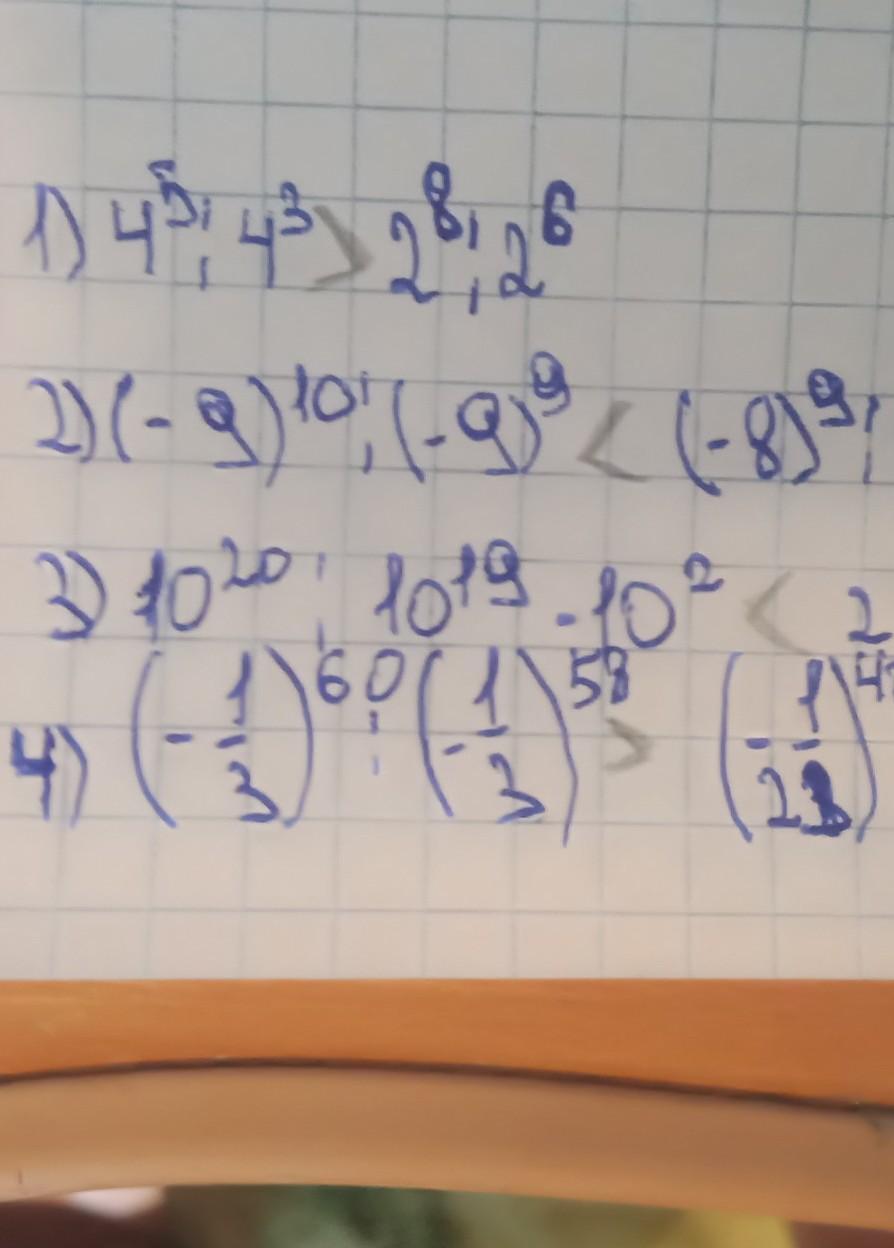 1) 4⁵ : 4³ > 2⁸ : 2⁶
2) (-9)¹⁰ : (-9)⁹ < (-8)⁹ :
3) 10²⁰ : 10¹⁹ · 10² < 2
4) (-1/3)⁶⁰ : (-1/3)⁵⁸ > (-1/2)⁴